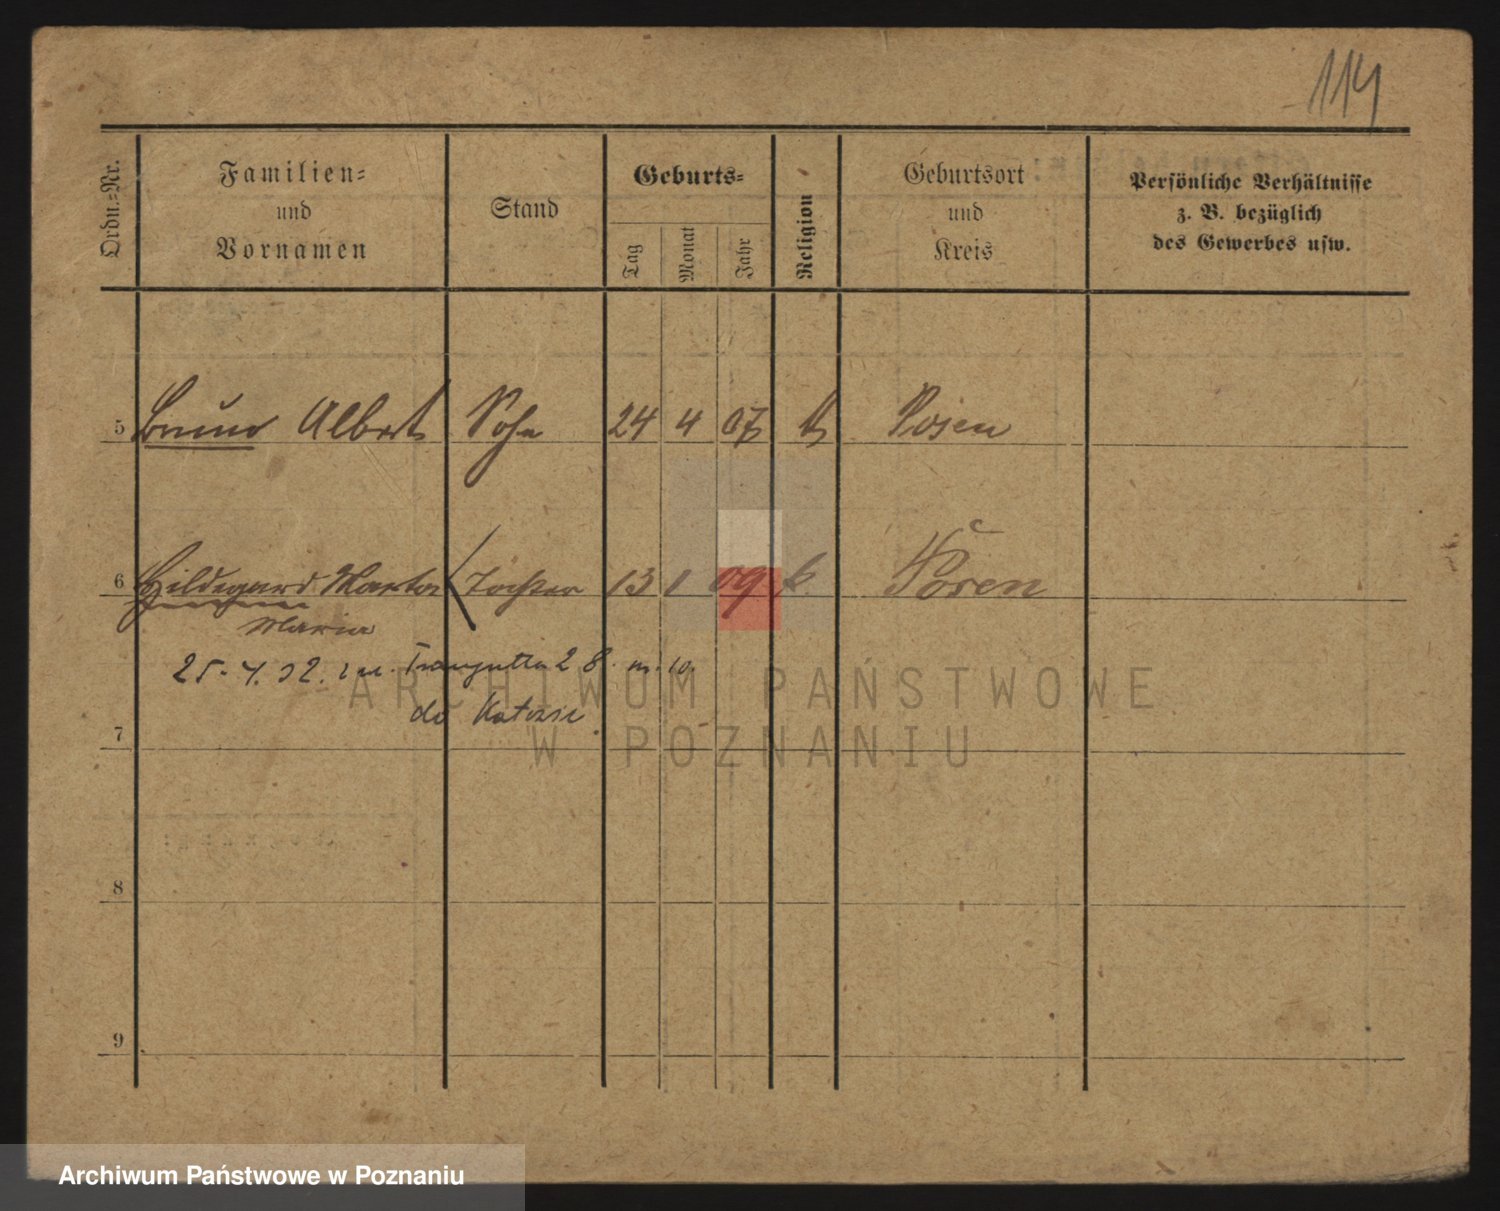 114
Ordn.-Nr.
Familien-
und
Vornamen
Stand
Geburts-
Tag
Monat
Jahr
Religion
Geburtsort
und
Kreis
Persönliche Verhältnisse
z. B. bezüglich
des Gewerbes usw.
5 Bruno Albert Sohn 24 4 07 Posen
6 Hildegard Marta Tochter 13 1 09 k. Posen
Maria
25-4.32. 2 8. m. 10.
do
7
8
9
ARCHIWUM PAŃSTWOWE
W POZNANIU
Archiwum Państwowe w Poznaniu